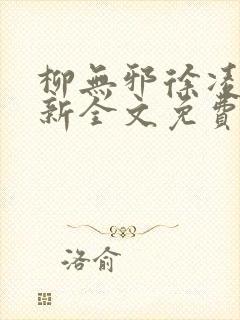 柳無邪徐凌
新全文免費
洛俞